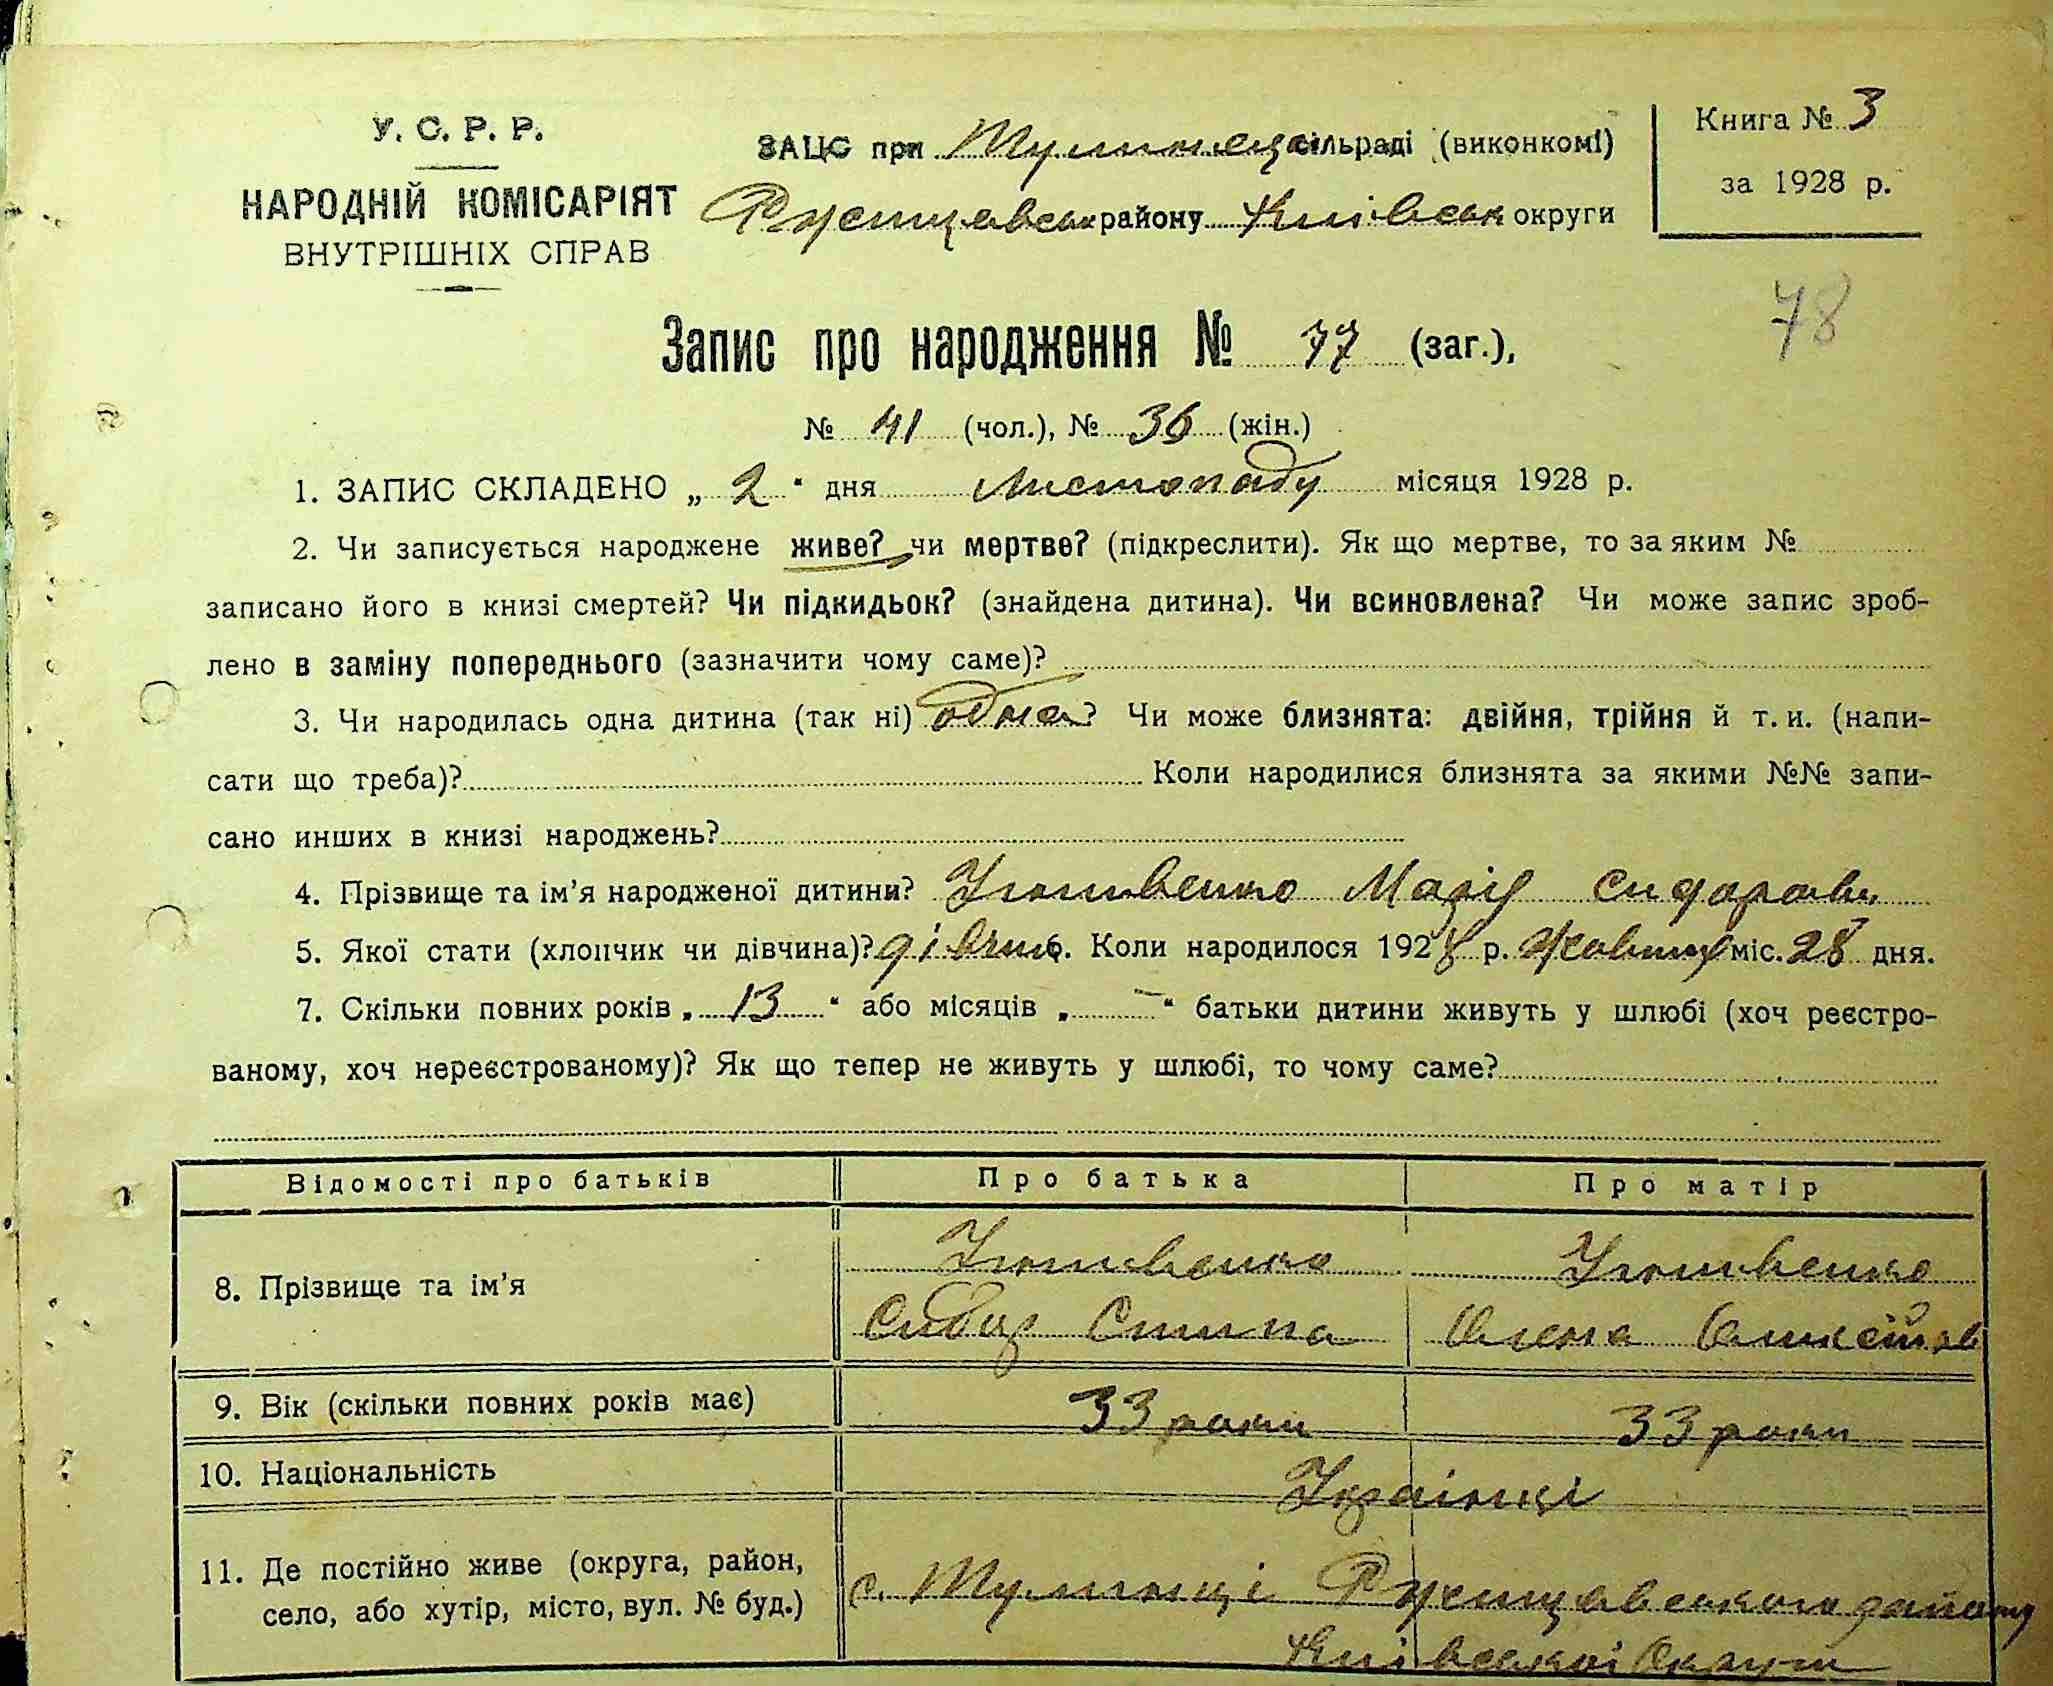 У. С. Р. Р.
НАРОДНІЙ КОМІСАРІЯТ
ВНУТРІШНІХ СПРАВ
ЗАЦС при сільраді (виконкомі)
Ржищевськ району Київськ округи
Книга № 3
за 1928 р.
78
Запис про народження № 77 (заг.),
№ 41 (чол.), № 36 (жін.)
1. ЗАПИС СКЛАДЕНО „ 2 “ дня листопаду місяця 1928 р.
2. Чи записується народжене живе? чи мертве? (підкреслити). Як що мертве, то за яким №
записано його в книзі смертей? Чи підкидьок? (знайдена дитина). Чи всиновлена? Чи може запис зроб-
лено в заміну попереднього (зазначити чому саме)?
3. Чи народилась одна дитина (так ні) одна? Чи може близнята: двійня, трійня й т. и. (напи-
сати що треба)? Коли народилися близнята за якими №№ запи-
сано инших в книзі народжень?
4. Прізвище та ім’я народженої дитини? Марія
5. Якої стати (хлопчик чи дівчина)? дівчи 6. Коли народилося 1928 р. міс. 28 дня.
7. Скільки повних років „ 13 “ або місяців „ — “ батьки дитини живуть у шлюбі (хоч реєстро-
ваному, хоч нереєстрованому)? Як що тепер не живуть у шлюбі, то чому саме?
Відомості про батьків Про батька Про матір
8. Прізвище та ім’я
Олена
9. Вік (скільки повних років має) 33 роки 33 роки
10. Національність Українці
11. Де постійно живе (округа, район,
село, або хутір, місто, вул. № буд.)
с. Тулинці Ржищевського району
Київської Округи